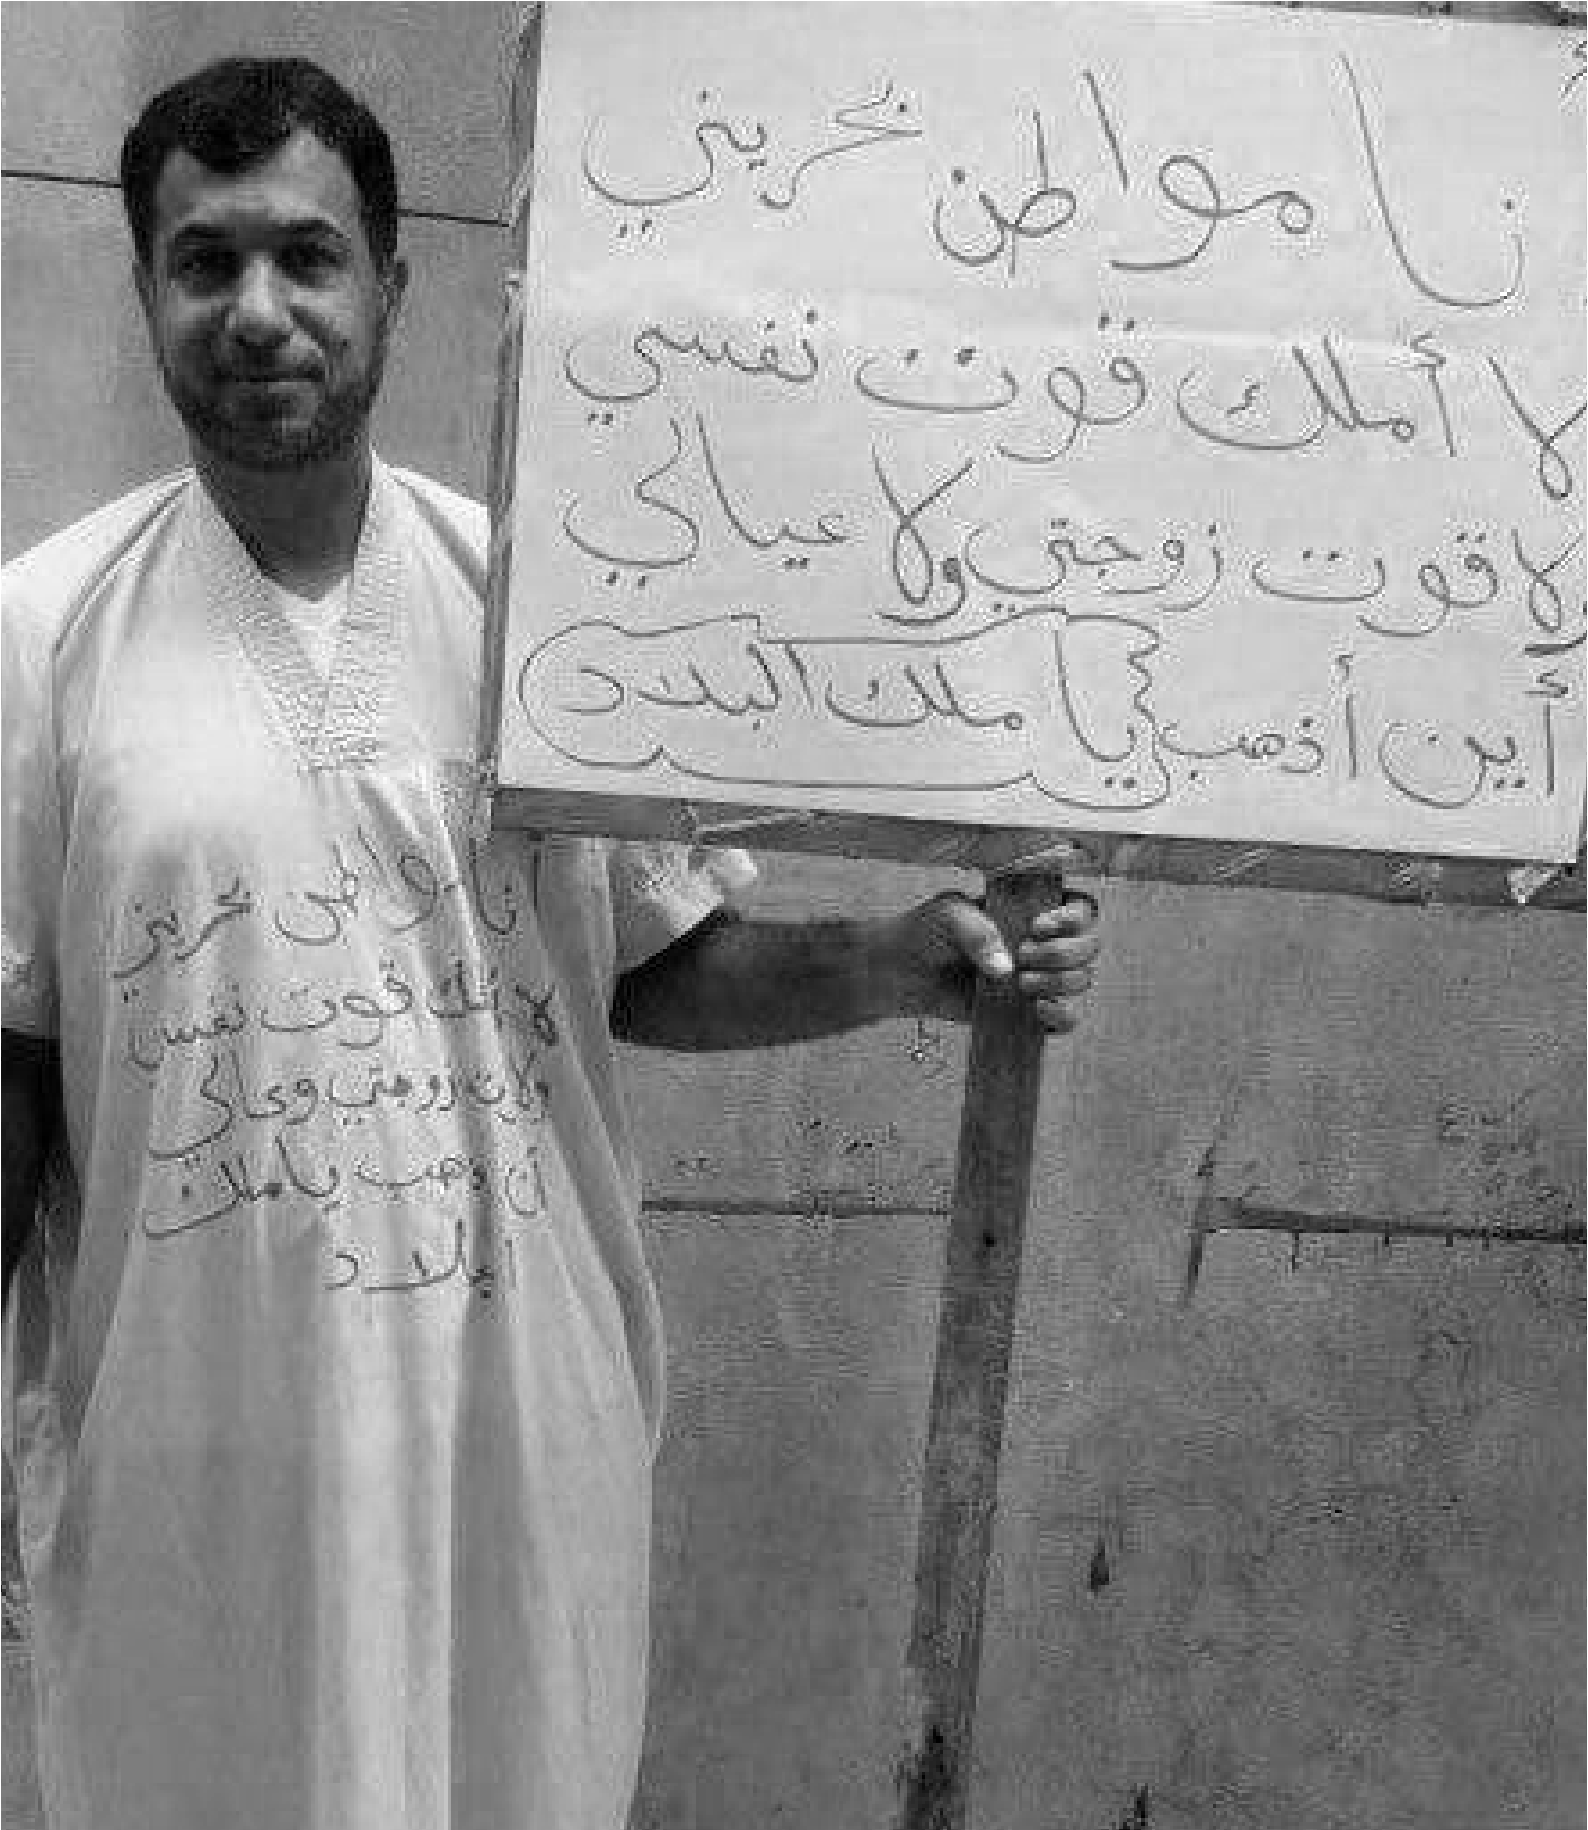 أنا مواطن بحريني
لا أملك قوت نفسي
ولا قوت زوجتي ولا عيالي
أين أذهب يا ملك البلاد
نا مواطن بحريني
لا قوت نفسي
زوجتي وعيالي
يا ملك